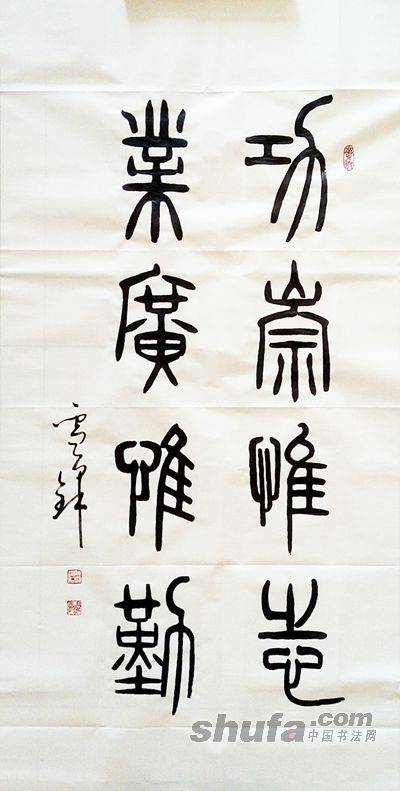 功崇惟志
業廣惟勤
shufa.com
中国书法网